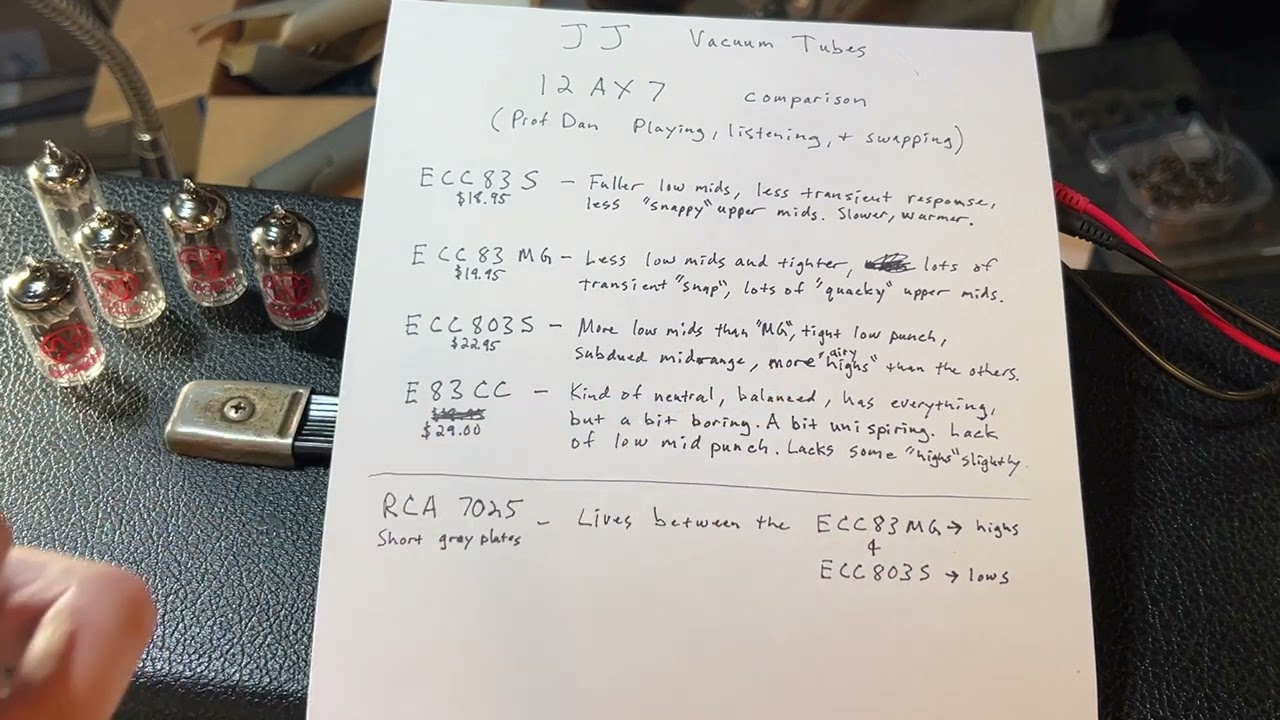 JJ Vacuum Tubes
12AX7 comparison
(Prof Dan Playing, listening, + swapping)
ECC83S - Fuller low mids, less transient response,
$18.95 less "snappy" upper mids. Slower, warmer.
ECC83 MG - Less low mids and tighter, lots of
$19.95 transient "snap", lots of "quacky" upper mids.
ECC803S - More low mids than "MG", tight low punch,
$22.95 subdued midrange, more "airy highs" than the others.
E83CC - Kind of neutral, balanced, has everything,
but a bit boring. A bit unispiring. Lack
$29.00 of low mid punch. Lacks some "highs" slightly.
RCA 7025 - Lives between the ECC83MG → highs
Short gray plates &
ECC803S → lows